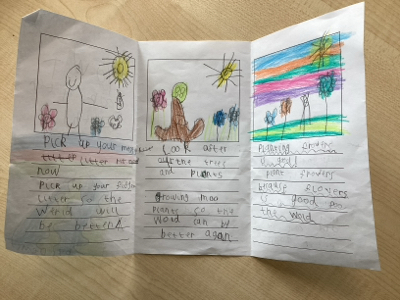 PICK up your
litter
now
PICK up your
litter so the
World will
be better
Look after
the trees
and plants
growing moa
plants so the
World can be
better agan
Planting flowers
plant flowers
because flowers
is good
the World